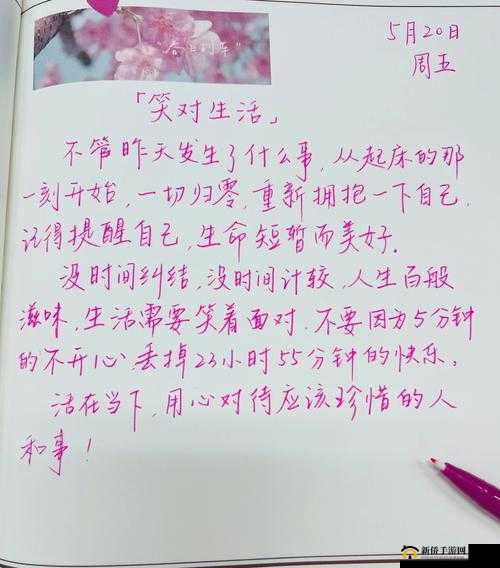 春日列车”
5月20日
周五
「笑对生活」
不管昨天发生了什么事,从起床的那
一刻开始,一切归零,重新拥抱一下自己,
记得提醒自己,生命短暂而美好.
没时间纠结,没时间计较,人生百般
滋味,生活需要笑着面对.不要因为5分钟
的不开心,丢掉23小时55分钟的快乐。
活在当下,用心对待应该珍惜的人
和事!
新侨手游网